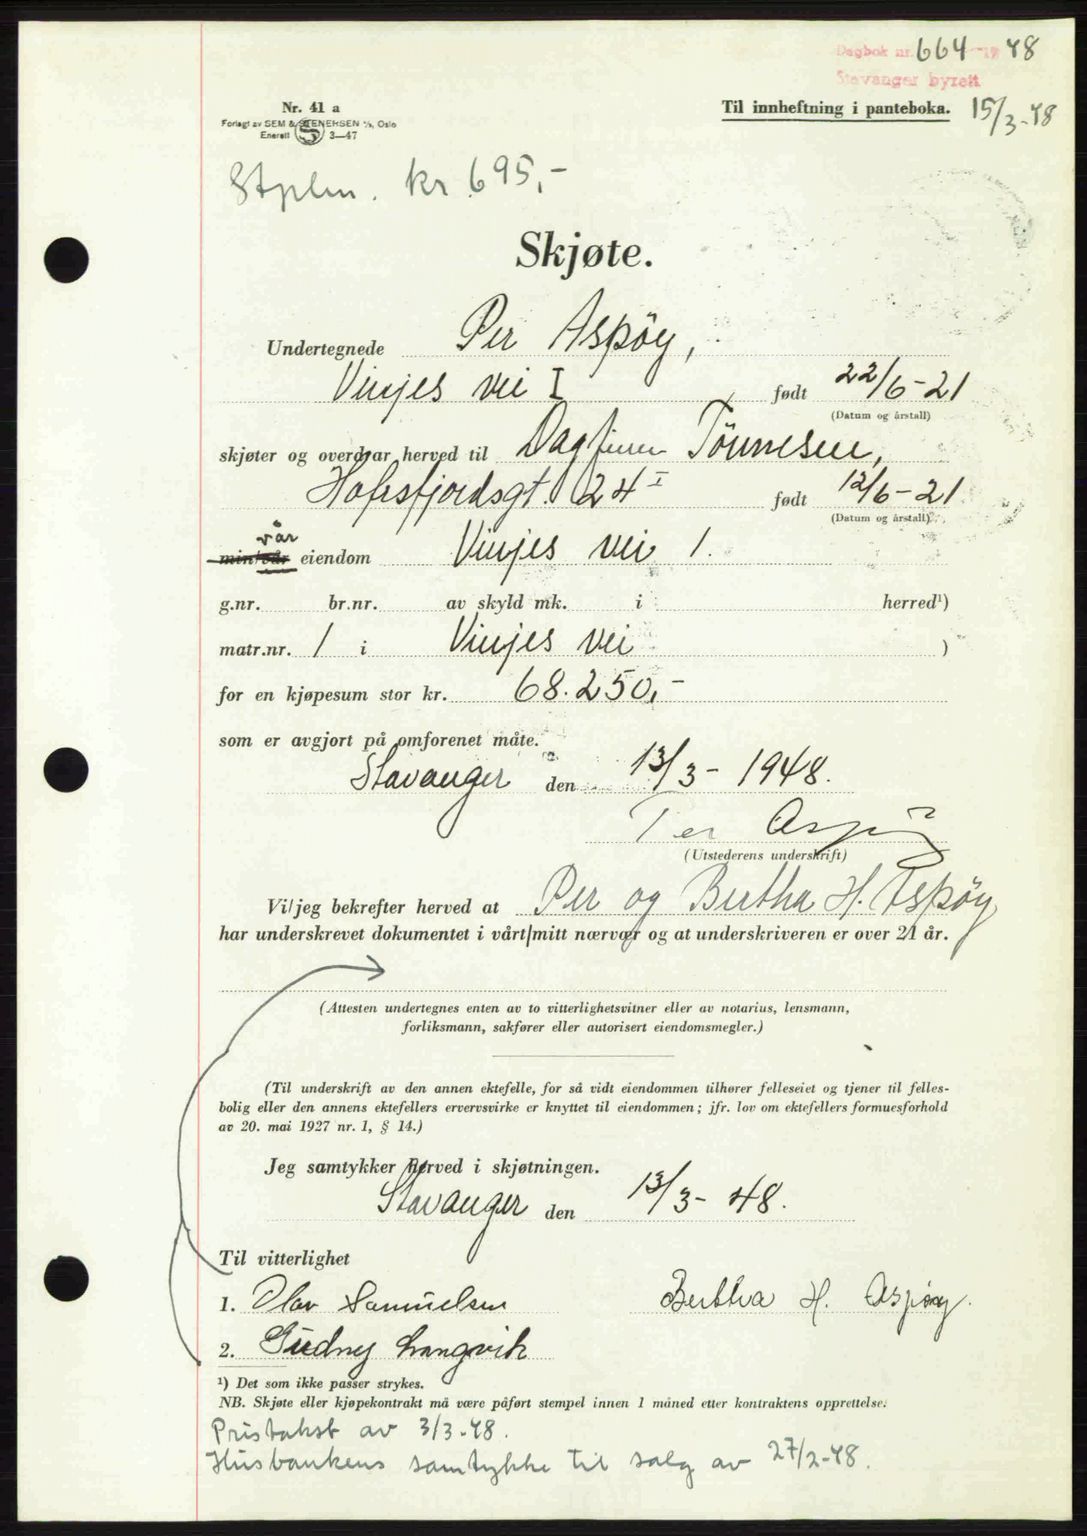 Dagbok nr. 664 - 19 48
Stavanger byrett
Nr. 41 a
Til innheftning i panteboka. 15/3-48
Forlagt av SEM & STENERSEN A/S, Oslo
Enerett S 3—47
Stplm. kr 695,-
Skjøte.
Undertegnede Per Aspöy,
Vinjes vei I født 22/6-21
(Datum og årstall)
skjøter og overdrar herved til Dagfinn Tönnesen,
Hafrsfjordsgt. 24 I født 12/6-21
(Datum og årstall)
vår
min/vår eiendom Vinjes vei 1.
g.nr. br.nr. av skyld mk. i herred¹)
matr.nr. 1 i Vinjes vei )
for en kjøpesum stor kr. 68.250,-
som er avgjort på omforenet måte.
Stavanger den 13/3-1948.
Per Aspöy
(Utstederens underskrift)
Vi/jeg bekrefter herved at Per og Bertha H. Aspöy
har underskrevet dokumentet i vårt/mitt nærvær og at underskriveren er over 21 år.
(Attesten undertegnes enten av to vitterlighetsvitner eller av notarius, lensmann,
forliksmann, sakfører eller autorisert eiendomsmegler.)
(Til underskrift av den annen ektefelle, for så vidt eiendommen tilhører felleseiet og tjener til felles-
bolig eller den annens ektefellers ervervsvirke er knyttet til eiendommen; jfr. lov om ektefellers formuesforhold
av 20. mai 1927 nr. 1, § 14.)
Jeg samtykker herved i skjøtningen.
Stavanger den 13/3-48.
Til vitterlighet
1. Olav Samuelsen Bertha H. Aspøy.
2. Gudny Langvik
¹) Det som ikke passer strykes.
NB. Skjøte eller kjøpekontrakt må være påført stempel innen 1 måned etter kontraktens opprettelse.
Pristakst av 3/3-48.
Husbankens samtykke til salg av 27/2-48.